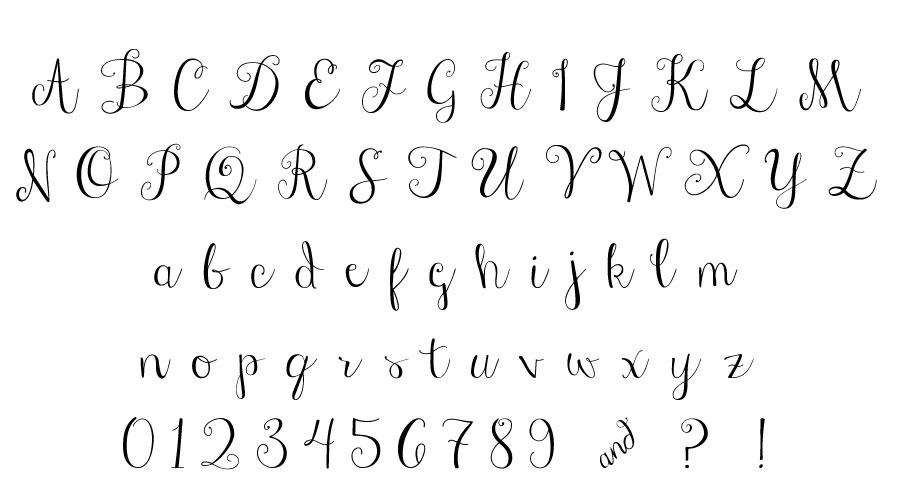 A B C D E F G H I J K L M
N O P Q R S T U V W X Y Z
a b c d e f g h i j k l m
n o p q r s t u v w x y z
0 1 2 3 4 5 6 7 8 9 and ? !